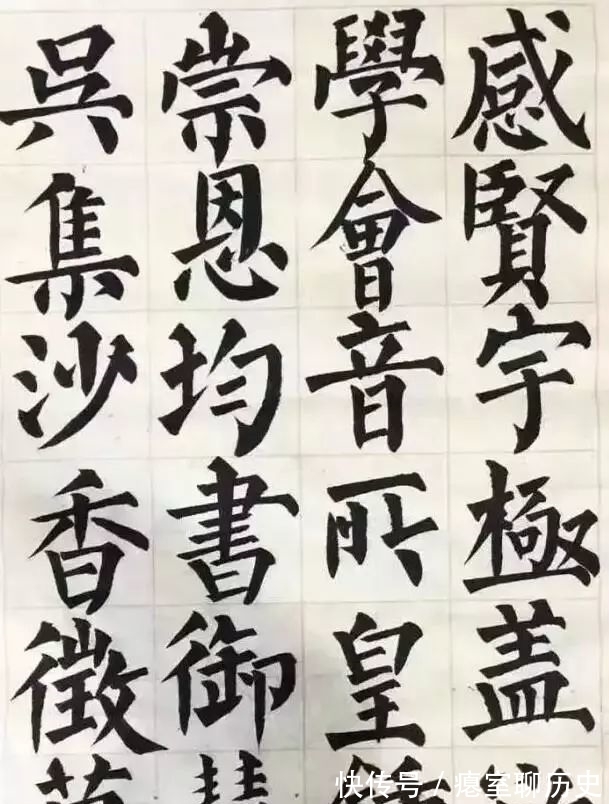 感賢宇極盖
學會音所皇
崇恩均書御
吳集沙香徵
快传号/瘪室聊历史